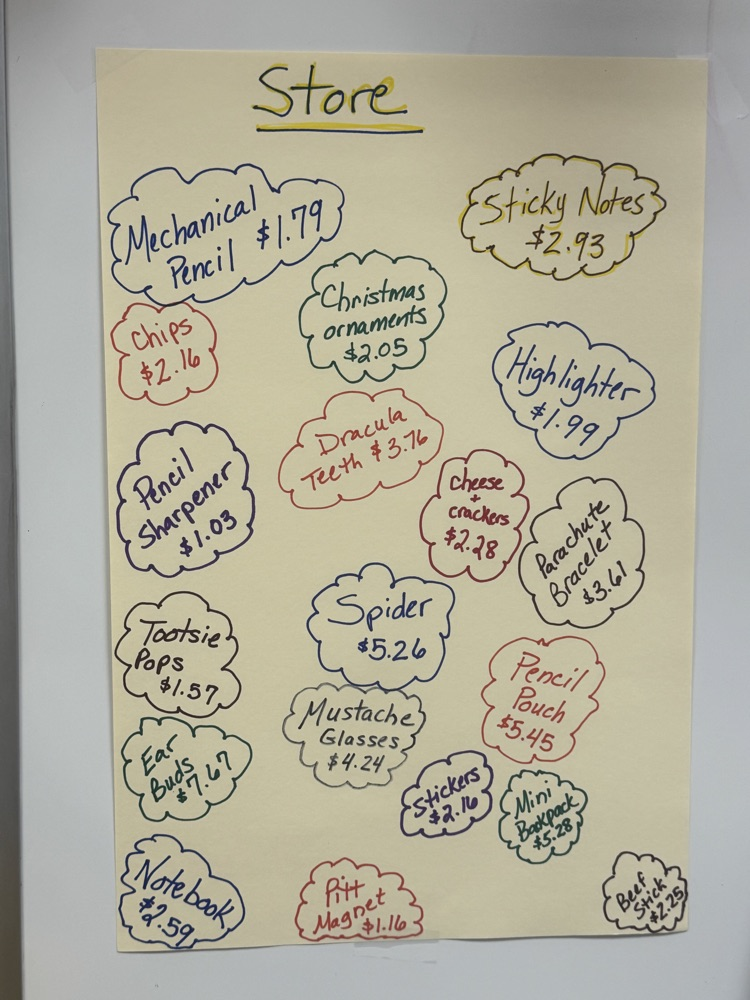 Store
Mechanical
Pencil $1.79
Sticky Notes
$2.93
Christmas
ornaments
$2.05
Chips
$2.16
Highlighter
$1.99
Dracula
Teeth $3.76
Pencil
Sharpener
$1.03
cheese
+
crackers
$2.28
Parachute
Bracelet
$3.61
Spider
$5.26
Tootsie
Pops
$1.57
Pencil
Pouch
$5.45
Mustache
Glasses
$4.24
Ear
Buds
$7.67
Stickers
$2.16
Mini
Backpack
$5.28
Notebook
$2.59
Pitt
Magnet
$1.16
Beef
Stick
$2.25